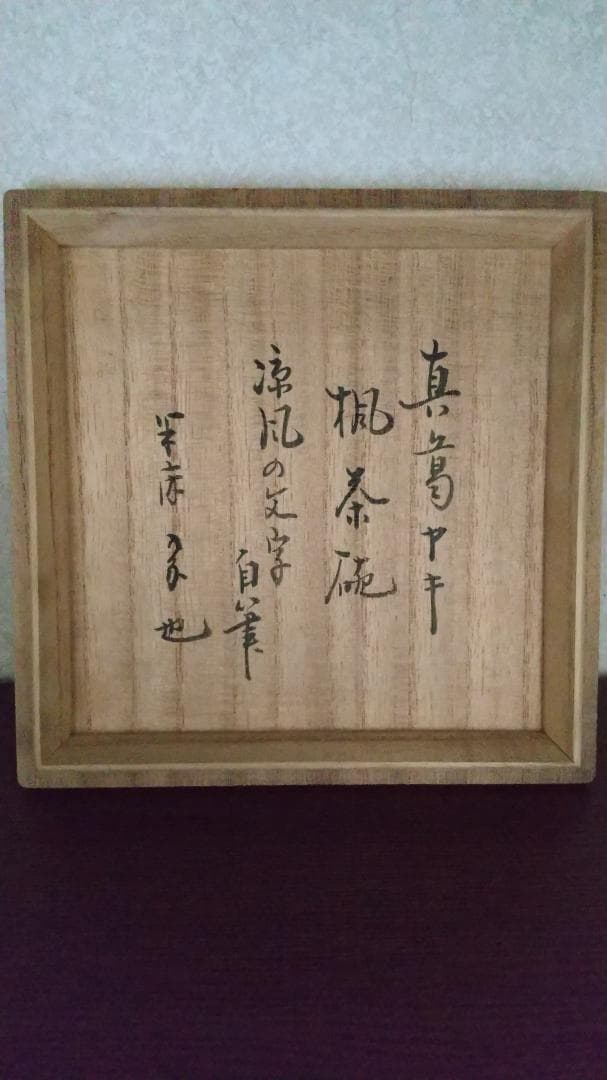 真葛ヤキ
楓茶碗
涼風の文字
自筆
半床 也